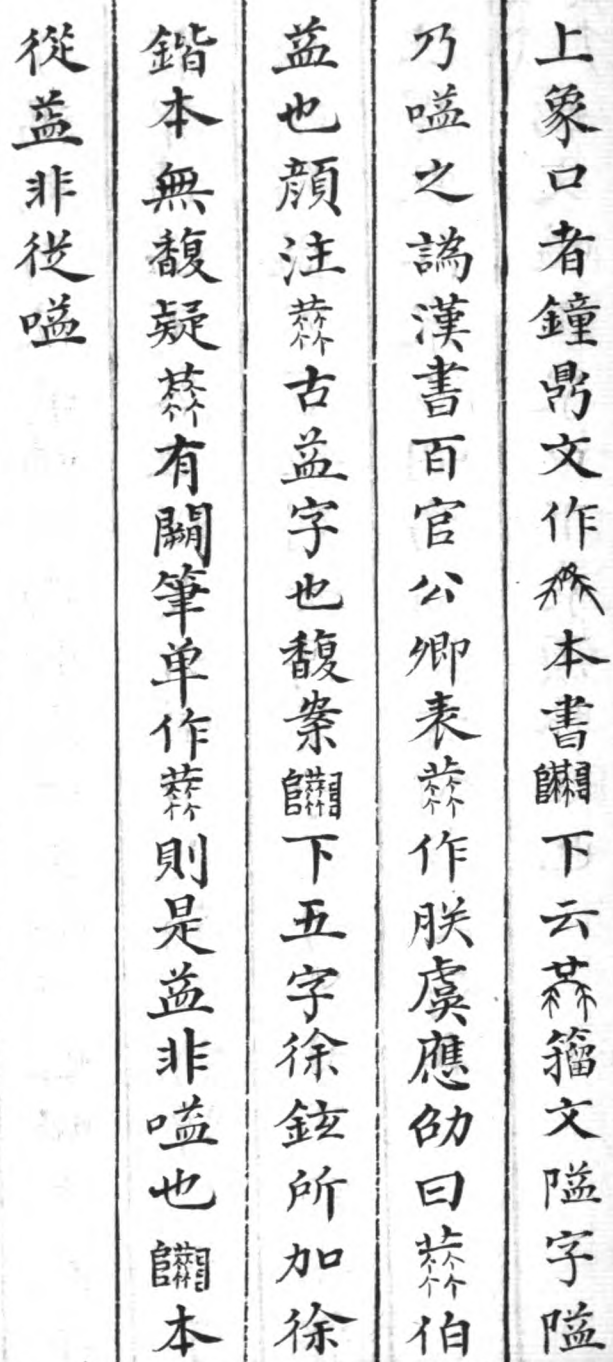 上象口者鐘鼎文作本書下云籀文隘字隘
乃嗌之譌漢書百官公卿表𦶜作朕虞應劭曰𦶜伯
益也顔注𦶜古益字也馥案下五字徐鉉所加徐
鍇本無馥疑𦶜有闕筆单作𦶜則是益非嗌也本
從益非從嗌